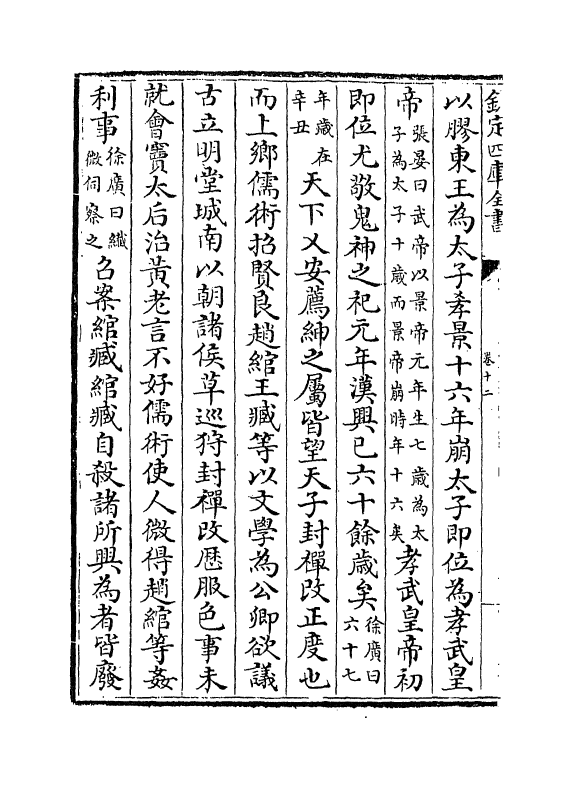 欽定四庫全書
卷十二
以膠東王為太子孝景十六年崩太子即位為孝武皇
帝張晏曰武帝以景帝元年生七歲為太子為太子十歲而景帝崩時年十六矣孝武皇帝初
即位尤敬鬼神之祀元年漢興已六十餘歲矣徐廣曰六十七
年歲在辛丑天下乂安薦紳之屬皆望天子封禪改正度也
而上鄉儒術招賢良趙綰王臧等以文學為公卿欲議
古立明堂城南以朝諸侯草巡狩封禪改厯服色事未
就會竇太后治黃老言不好儒術使人微得趙綰等姦
利事徐廣曰纎微伺察之召案綰臧綰臧自殺諸所興為者皆廢